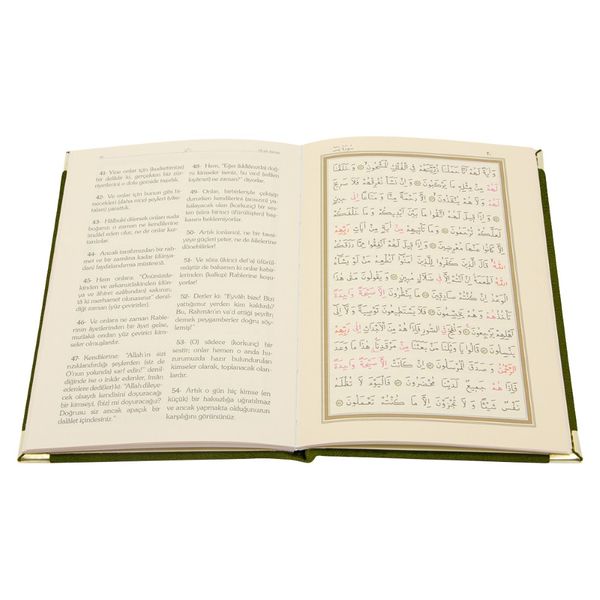 41- Yine onlar için (kudretimize)
bir delildir ki, gerçekten biz zür-
riyetlerini o dolu gemide taşıdık.
42- Ve onlar için bunun gibi bi-
necekleri (daha nice) şeyleri (yük-
taları) yarattık.
43- Hâlbuki dilersek onları suda
boğarız; o zaman ne kendilerine
imdâd eden olur, ne de onlar kur-
tarılırlar.
44- Ancak tarafımızdan bir rah-
met ve bir zamana kadar (dünya-
dan) faydalandırma müstesnâ.
45- Hem onlara: "Önünüzde-
kinden ve arkanızdakinden (dün-
ya ve âhiret azâbından) sakının;
tâ ki merhamet olunasınız" denil-
diği zaman (yüz çevirirler).
46- Ve onlara ne zaman Rable-
rinin âyetlerinden bir âyet gelse,
mutlaka ondan yüz çevirici kim-
seler olmuşlardır.
47- Kendilerine: "Allah'ın sizi
rızıklandırdığı şeylerden (siz de
O'nun yolunda) sarf edin!" denil-
diğinde ise o inkâr edenler, îmân
edenlere dediler ki: "Allah dileye-
cek olsaydı kendisini doyuracağı
bir kimseyi, (biz) mi doyuracağız?
Doğrusu siz ancak apaçık bir
dalâlet içindesiniz."
48- Hem, "Eğer (iddiânızda) doğ-
ru kimseler iseniz, bu vaad (edilen
kıyâmet) ne zaman?" diyorlar.
49- Onlar, birbirleriyle çekişip
dururlarken kendilerini (ansızın) ya-
kalayacak olan (korkunç) bir ses-
den (sûra birinci üfürülüşten) baş-
kasını beklemiyorlar.
50- Artık (onlar) ne bir tavsi-
yeye güçleri yeter, ne de âilelerine
dönebilirler!
51- Ve sûra (ikinci def'a) üfürül-
müştür de bakarsın ki onlar kabir-
lerinden (kalkıp) Rablerine koşu-
yorlar.
52- Derler ki: "Eyvâh bize! Bizi
yattığımız yerden kim kaldırdı?
Bu, Rahmân'ın va'd ettiği şeydir;
demek peygamberler doğru söyle-
miş!"
53- (O) sâdece (korkunç) bir
sestir; onlar hemen o anda hu-
zurumuzda hazır bulundurulan
kimseler olarak, toplanacak olan-
lardır.
54- Artık o gün hiç kimse (en
küçük) bir haksızlığa uğratılmaz
ve ancak yapmakta olduğunuzun
karşılığını görürsünüz.
وَاٰيَةٌ لَهُمْ اَنَّا حَمَلْنَا ذُرِّيَّتَهُمْ فِي الْفُلْكِ الْمَشْحُونِ وَخَلَقْنَا
لَهُمْ مِنْ مِثْلِهِ مَا يَرْكَبُونَ وَاِنْ نَشَأْ نُغْرِقْهُمْ فَلَا صَرِيخَ
لَهُمْ وَلَا هُمْ يُنْقَذُونَ اِلَّا رَحْمَةً مِنَّا وَمَتَاعًا اِلٰى
حِينٍ وَاِذَا قِيلَ لَهُمُ اتَّقُوا مَا بَيْنَ اَيْدِيكُمْ وَمَا خَلْفَكُمْ
لَعَلَّكُمْ تُرْحَمُونَ وَمَا تَأْتِيهِمْ مِنْ اٰيَةٍ مِنْ اٰيَاتِ رَبِّهِمْ
اِلَّا كَانُوا عَنْهَا مُعْرِضِينَ وَاِذَا قِيلَ لَهُمْ اَنْفِقُوا مِمَّا رَزَقَكُمُ
اللّٰهُ قَالَ الَّذِينَ كَفَرُوا لِلَّذِينَ اٰمَنُوا اَنُطْعِمُ مَنْ لَوْ يَشَاءُ
اللّٰهُ اَطْعَمَهُ اِنْ اَنْتُمْ اِلَّا فِي ضَلَالٍ مُبِينٍ وَيَقُولُونَ مَتٰى هٰذَا
الْوَعْدُ اِنْ كُنْتُمْ صَادِقِينَ مَا يَنْظُرُونَ اِلَّا صَيْحَةً وَاحِدَةً
تَأْخُذُهُمْ وَهُمْ يَخِصِّمُونَ فَلَا يَسْتَطِيعُونَ تَوْصِيَةً وَلَا اِلٰى
اَهْلِهِمْ يَرْجِعُونَ وَنُفِخَ فِي الصُّورِ فَاِذَا هُمْ مِنَ الْاَجْدَاثِ اِلٰى رَبِّهِمْ
يَنْسِلُونَ قَالُوا يَا وَيْلَنَا مَنْ بَعَثَنَا مِنْ مَرْقَدِنَا هٰذَا مَا وَعَدَ
الرَّحْمٰنُ وَصَدَقَ الْمُرْسَلُونَ اِنْ كَانَتْ اِلَّا صَيْحَةً وَاحِدَةً
فَاِذَا هُمْ جَمِيعٌ لَدَيْنَا مُحْضَرُونَ فَالْيَوْمَ لَا تُظْلَمُ
نَفْسٌ شَيْئًا وَلَا تُجْزَوْنَ اِلَّا مَا كُنْتُمْ تَعْمَلُونَ